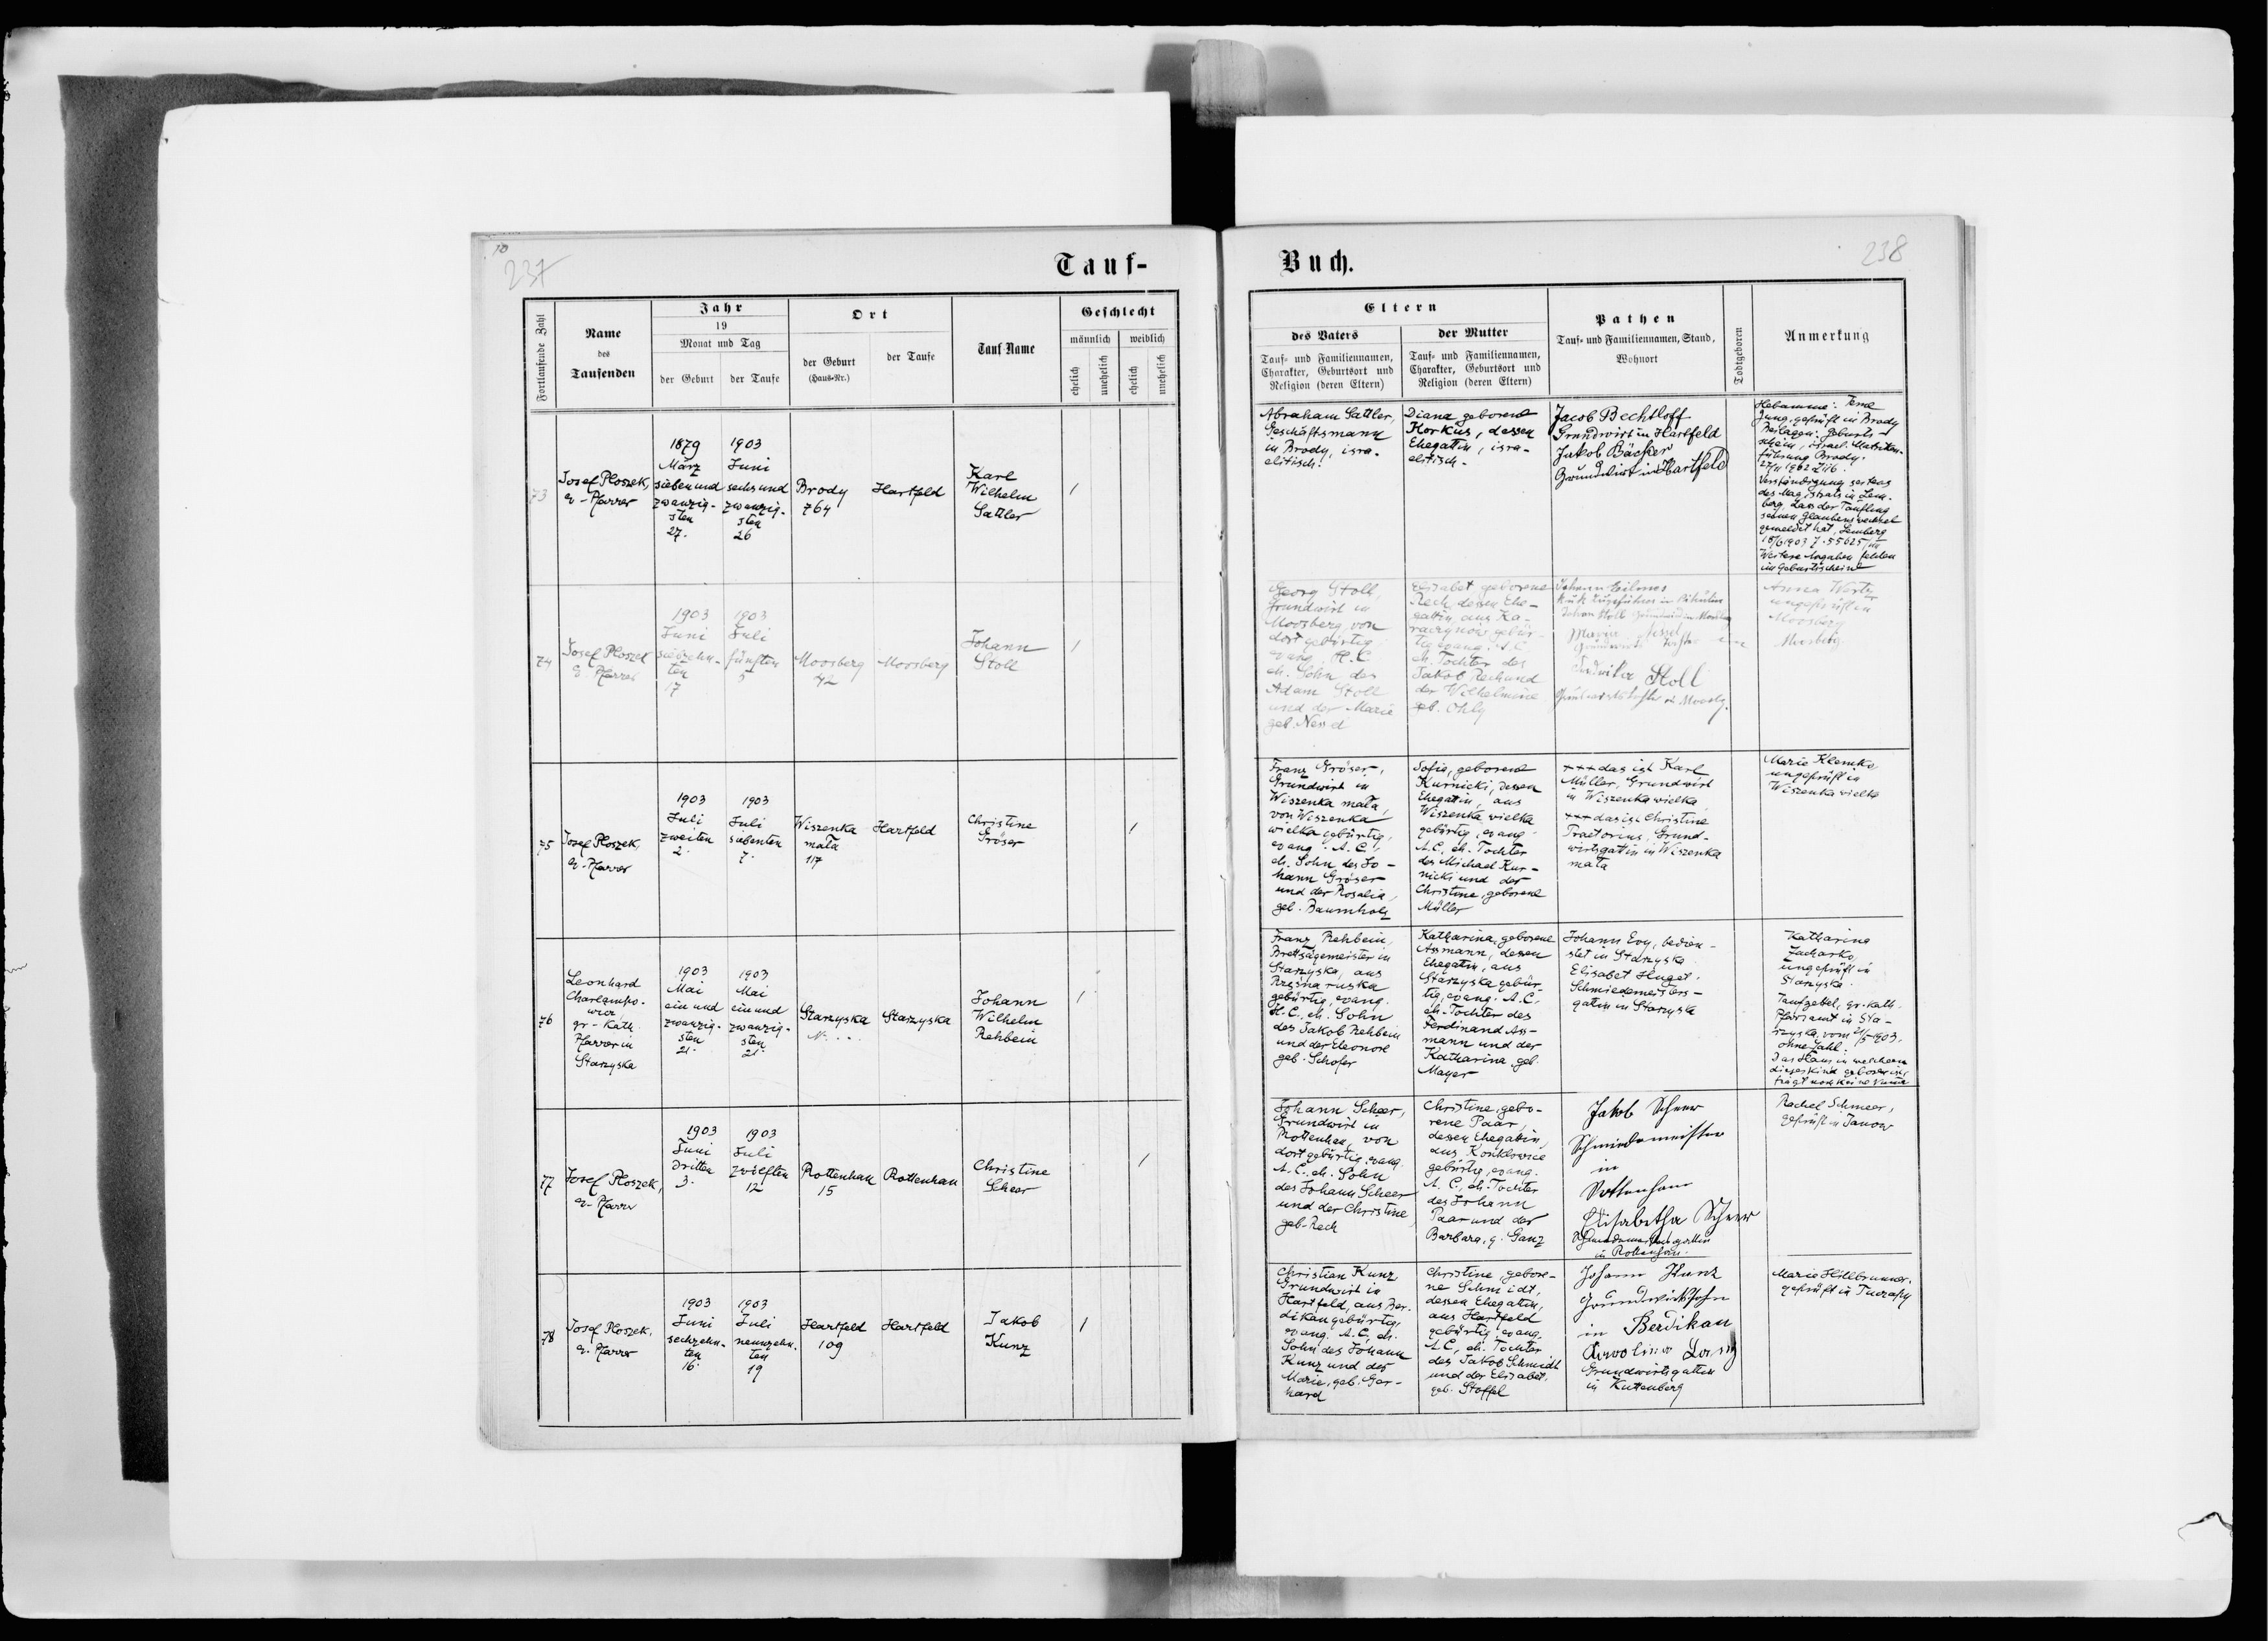 10
237
238
Tauf-
Buch.
Fortlaufende Zahl
Name
des
Taufenden
Jahr
19
Monat und Tag
der Geburt
der Taufe
Ort
der Geburt
(Haus-Nr.)
der Taufe
Tauf-Name
Geschlecht
männlich
weiblich
ehelich
unehelich
ehelich
unehelich
Eltern
des Vaters
Tauf- und Familiennamen,
Charakter, Geburtsort und
Religion (deren Eltern)
der Mutter
Tauf- und Familiennamen,
Charakter, Geburtsort und
Religion (deren Eltern)
Pathen
Tauf- und Familiennamen, Stand,
Wohnort
Todtgeboren
Anmerkung
73
Josef Ploszek,
ev-Pfarrer
1879
März
sieben und
zwanzig-
sten
27.
1903
Juni
sechs und
zwanzig-
sten
26
Brody
764
Hartfeld
Karl
Wilhelm
Sattler
1
Abraham Sattler,
Geschäftsmann
in Brody, isra-
elitisch.
Diana geborene
Korkus, dessen
Ehegattin, isra-
elitisch.
Jacob Bechtloff
Grundwirt in Hartfeld
Jakob Bäcker
Grundwirt in Hartfeld
Hebamme:
Jung, geprüft in Brody
Beilagen: Geburts-
schein, israel. Matriken-
führung Brody.
Verständigung seitens
des Magistrats in Lem-
berg, dass der Täufling
seinen Glaubenswechsel
gemeldet hat, Lemberg
18/6 1903
Weitere Angaben fehlen
im Geburtsscheine
74
Josef Ploszek
ev. Pfarrer
1903
Juni
siebzehn-
ten
17
1903
Juli
fünften
5
Moosberg
42
Moosberg
Johann
Stoll
1
Georg Stoll,
Grundwirt in
Moosberg, von
dort gebürtig
evang. H.C.
eh. Sohn des
Adam Stoll
und der Marie
geb.
Elisabet geborene
Rech, dessen Ehe-
gattin, aus Ka-
raczynow gebür-
tig evang. A.C.
eh. Tochter des
Jakob Rech und
der Wilhelmine
geb. Ohly
Johann
Johan Stoll
Ludwika Stoll
Anna
ungeprüft in
Moosberg
Moosberg
75
Josef Ploszek,
ev-Pfarrer
1903
Juli
zweiten
2.
1903
Juli
siebenten
7.
Wiszenka
mała
117
Hartfeld
Christine
Gröser
1
Franz Gröser,
Grundwirt in
Wiszenka mała,
von Wiszenka
wielka gebürtig,
evang. A.C.,
eh. Sohn des Jo-
hann Gröser
und der Rosalia,
geb. Baumholz
Sofie, geborene
Kurnicki, dessen
Ehegattin, aus
Wiszenka wielka
gebürtig, evang.
A.C., eh. Tochter
des Michael Kur-
nicki und der
Christine, geborene
Müller
+++ das ist Karl
Müller, Grundwirt
in Wiszenka wielka
+++ das ist Christine
Praetorius, Grund-
wirtsgattin in Wiszenka
mała
Marie Klemke
ungeprüft in
Wiszenka wielka
76
Leonhard
Charlampo-
wicz
gr-kath.
Pfarrer in
Starzyska
1903
Mai
ein und
zwanzig-
sten
21.
1903
Mai
ein und
zwanzig-
sten
21.
Starzyska
Nr. ...
Starzyska
Johann
Wilhelm
Rehbein
1
Franz Rehbein,
Brettsägemeister in
Starzyska, aus
gebürtig, evang.
H.C., eh. Sohn
des Jakob Rehbein
und der Eleonore
geb. Schofer
Katharina, geborene
Assmann, dessen
Ehegattin, aus
Starzyska gebür-
tig, evang. A.C.
eh. Tochter des
Ferdinand Ass-
mann und der
Katharina, geb.
Mayer
Johann Evy, bedien-
stet in Starzyska
Elisabet Huget,
Schmiedemeisters-
gattin in Starzyska
Katharina
Zacharko,
ungeprüft in
Starzyska.
Taufzettel, gr. kath.
Pfarramt in Sta-
rzyska vom 21/5 1903.
ohne Zahl.
Das Haus in welchem
dieses Kind geboren ist,
trägt noch keine
77
Josef Ploszek,
ev-Pfarrer
1903
Juni
dritten
3.
1903
Juli
zwölften
12
Rottenhan
15
Rottenhan
Christine
Scheer
1
Johann Scheer,
Grundwirt in
Rottenhan, von
dort gebürtig, evang.
A.C., eh. Sohn
des Johann Scheer
und der Christine
geb. Rech
Christine, gebo-
rene Paar,
dessen Ehegattin,
aus
gebürtig, evang.
A.C., eh. Tochter
des Johann
Paar und der
Barbara, g. Ganz
Jakob Scheer
Schmiedemeister
in
Rottenhan
Elisabetha Scheer
Schmiedemeistersgattin
in Rottenhan.
Rachel Schmeer,
geprüft in Janow
78
Josef Ploszek,
ev. Pfarrer
1903
Juni
sechzehn-
ten
16.
1903
Juli
neunzehn-
ten
19
Hartfeld
109
Hartfeld
Jakob
Kunz
1
Christian Kunz,
Grundwirt in
Hartfeld, aus Ber-
dikau gebürtig,
evang. A.C., eh.
Sohn des Johann
Kunz und der
Marie, geb. Ger-
hard
Christine, gebore-
ne Schmidt,
dessen Ehegattin,
aus Hartfeld
gebürtig, evang.
A.C., eh. Tochter
des Jakob Schmidt
und der Elisabet,
geb. Stoffel
Johann Kunz
Grundwirtssohn
in Berdikau
Grundwirtsgattin
in Kuttenberg
Marie Hillbrunner,
geprüft in Tuczapy